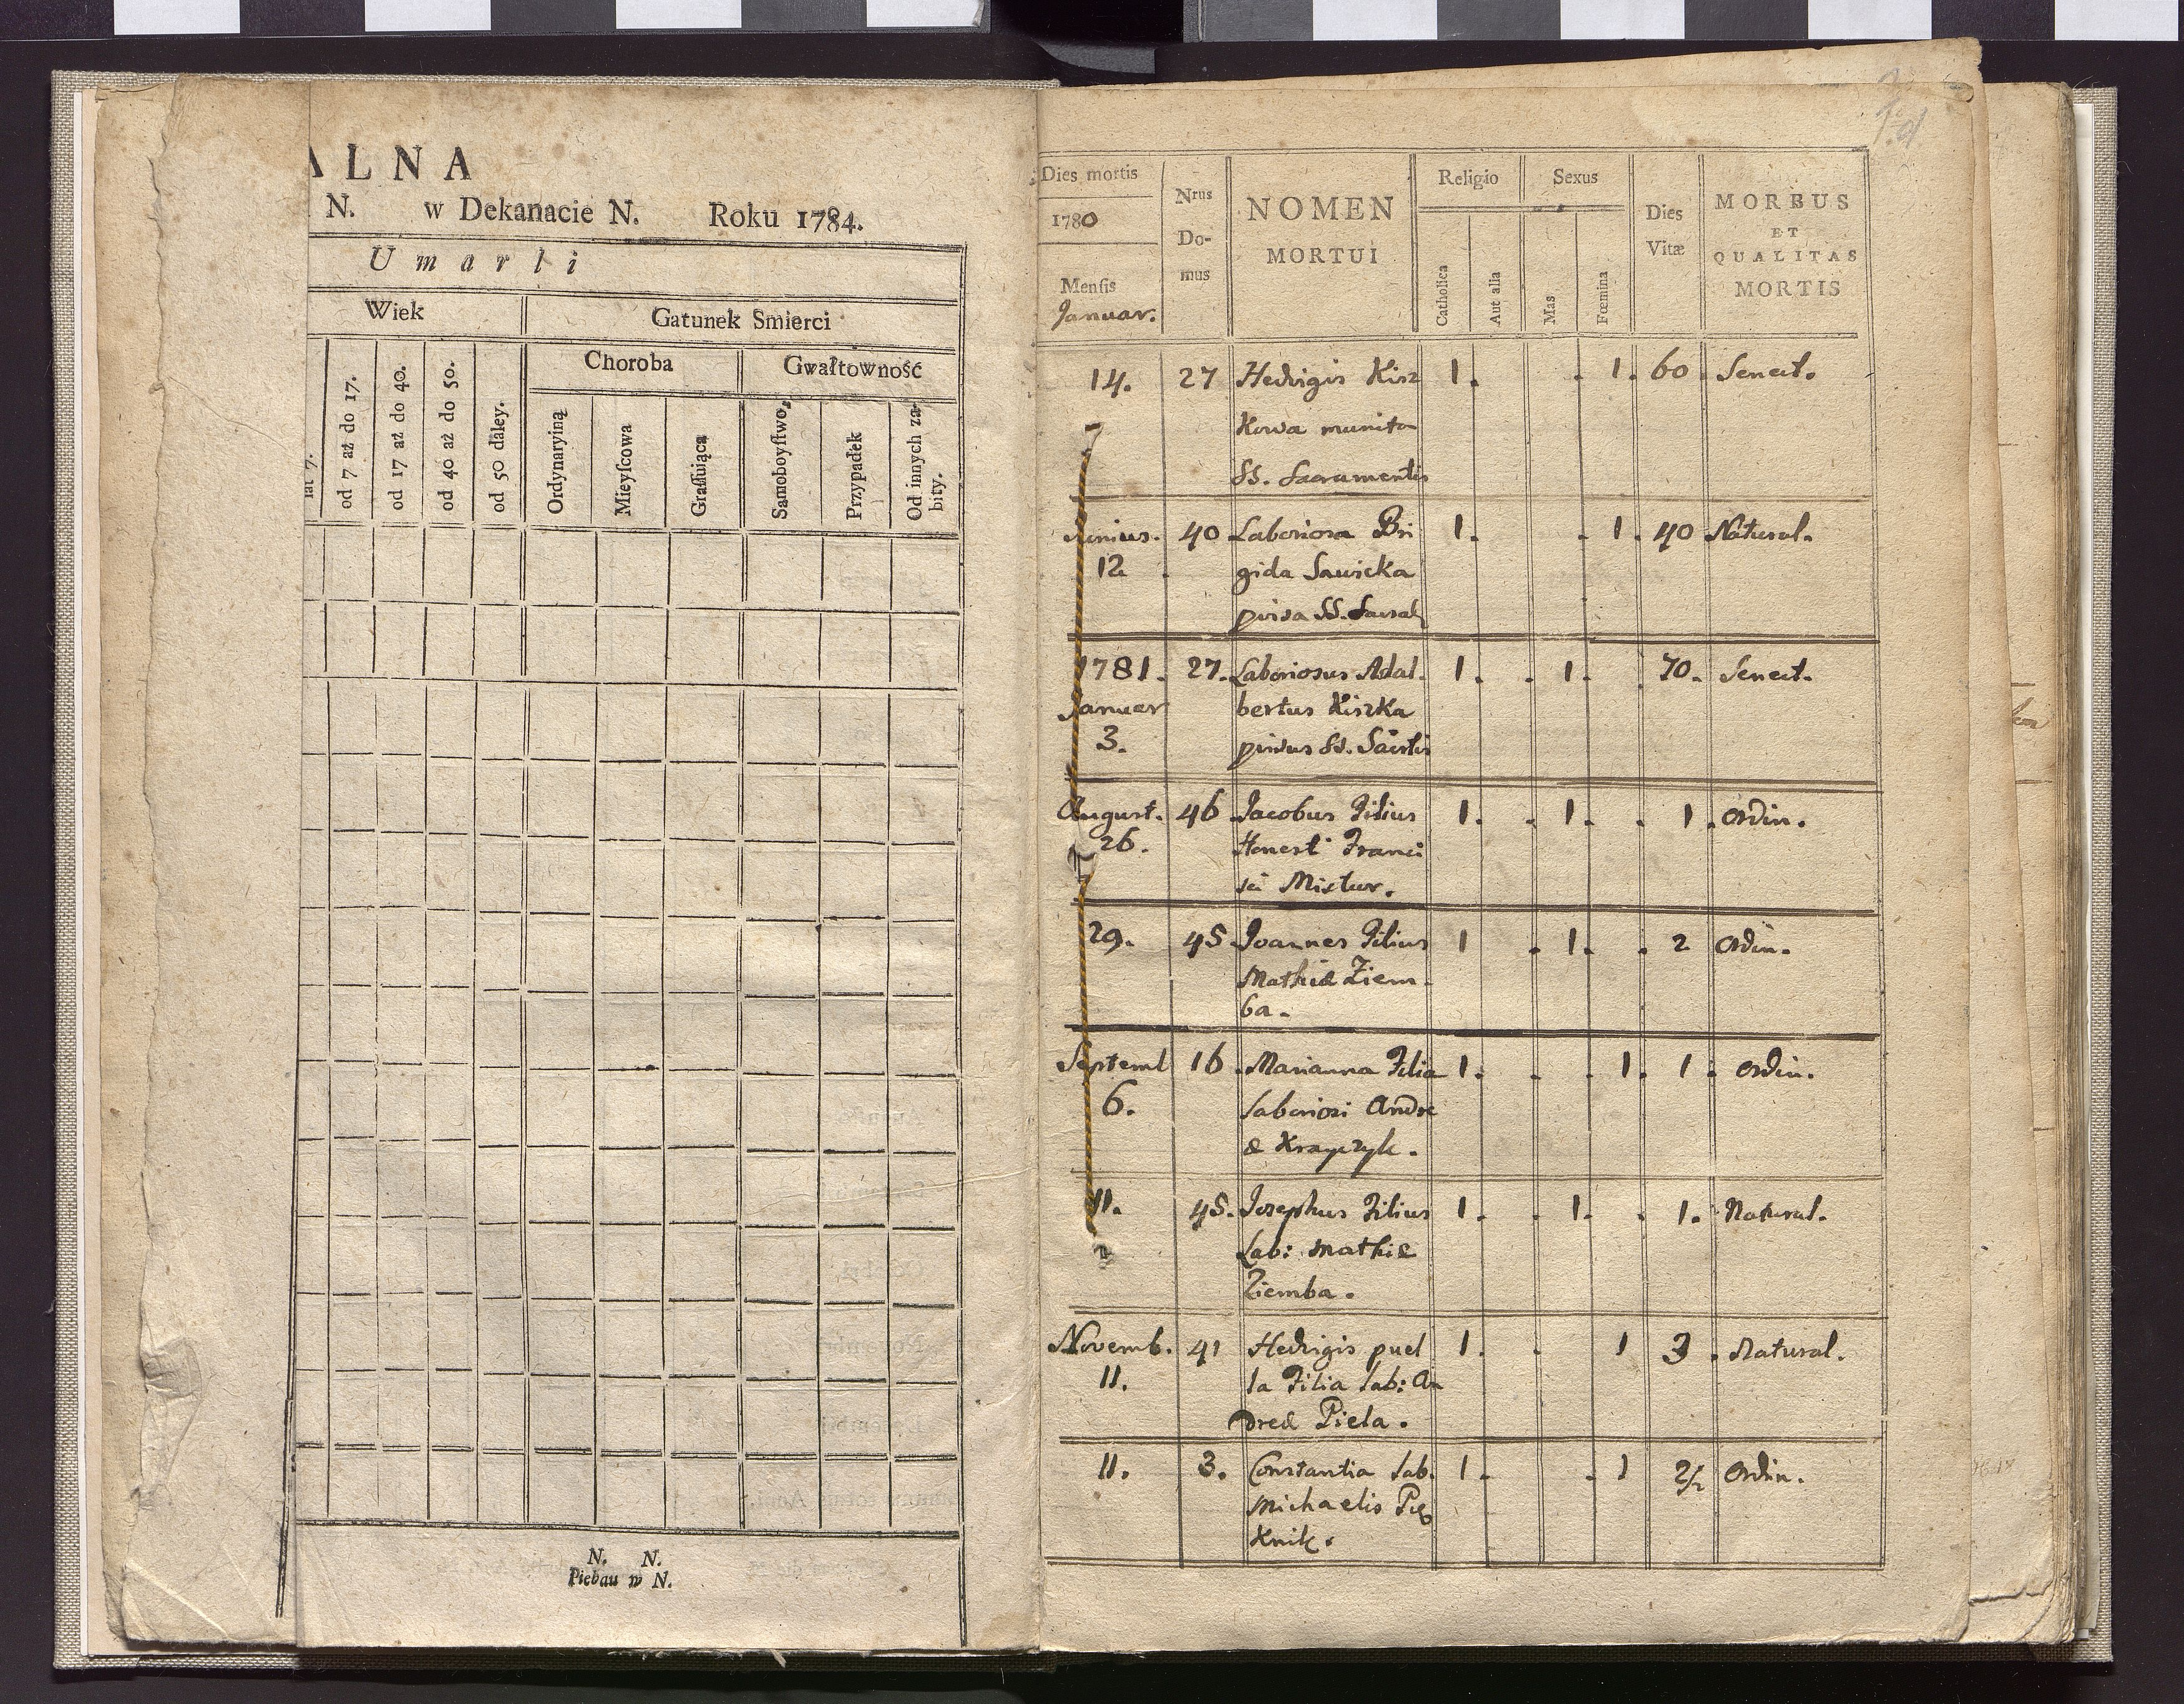 ALNA
N. w Dekanacie N. Roku 1784.
Umarli
Wiek
Gatunek Smierci
Choroba
Gwałtowność
lat 7.
od 7 aż do 17.
od 17 aż do 40.
od 40 aż do 50.
od 50 daley.
Ordynaryiną
Mieyſcowa
Graſſuiąca
Samoboyſtwo,
Przypadek
Od innych za-
bity.
N. N.
Pleban w N.
Dies mortis
1780
Menſis
Januar.
Nrus
Do-
mus
NOMEN
MORTUI
Religio
Catholica
Aut alia
Sexus
Mas
Fœmina
Dies
Vitæ
MORBUS
ET
QUALITAS
MORTIS
14. 27 Hedvigis Kisz 1. . 1. 60. Senect.
Kowa munita
SS. Sacramentis
Junius. 40 Laboriosa Bri 1. . 1. 40 Natural.
12 . gida Sawicka
1781. 27. Laboriosus Adal. 1. . 1. . 70. Senect.
Januar bertus Kiszka
3. SS.
August. 46 Jacobus Filius 1. . 1. . 1. Ordin.
26. Honesti Franci
sci Mistur.
29. 45 Joannes Filius 1 . 1. . 2 Ordin.
Mathiæ Ziem
ba.
Septemb 16 Marianna Filia 1. . . 1. 1. Ordin.
6. Laboriosi Andre
æ Krayczyk.
11. 45. Josephus Filius 1. . 1. . 1. Natural.
Lab: Mathiæ
Ziemba.
Novemb. 41 Hedvigis puel 1. . 1 3. Natural.
11. la Filia Lab: An
dreæ Piela.
11. 3. Constantia Lab. 1. . 1 2/2 Ordin.
Michaelis
Knik.